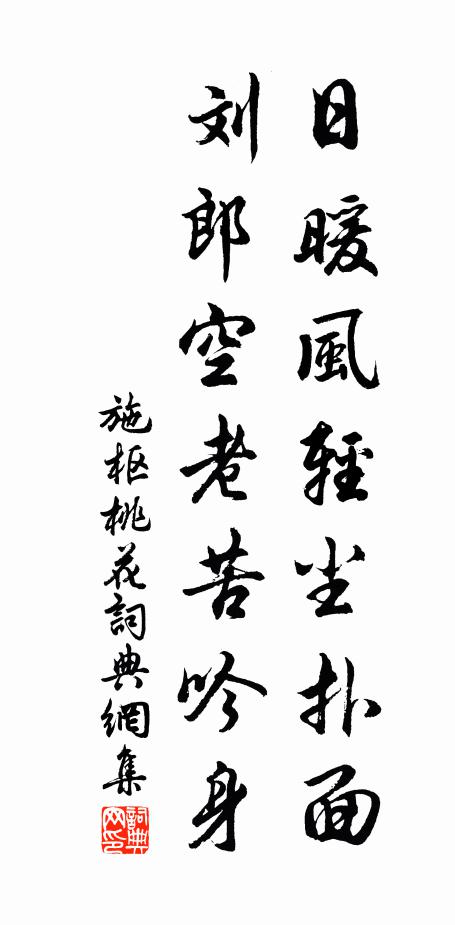 日暖風輕尘扑面
刘郎空老苦吟身
施枢桃花詞典網集
詞典网印